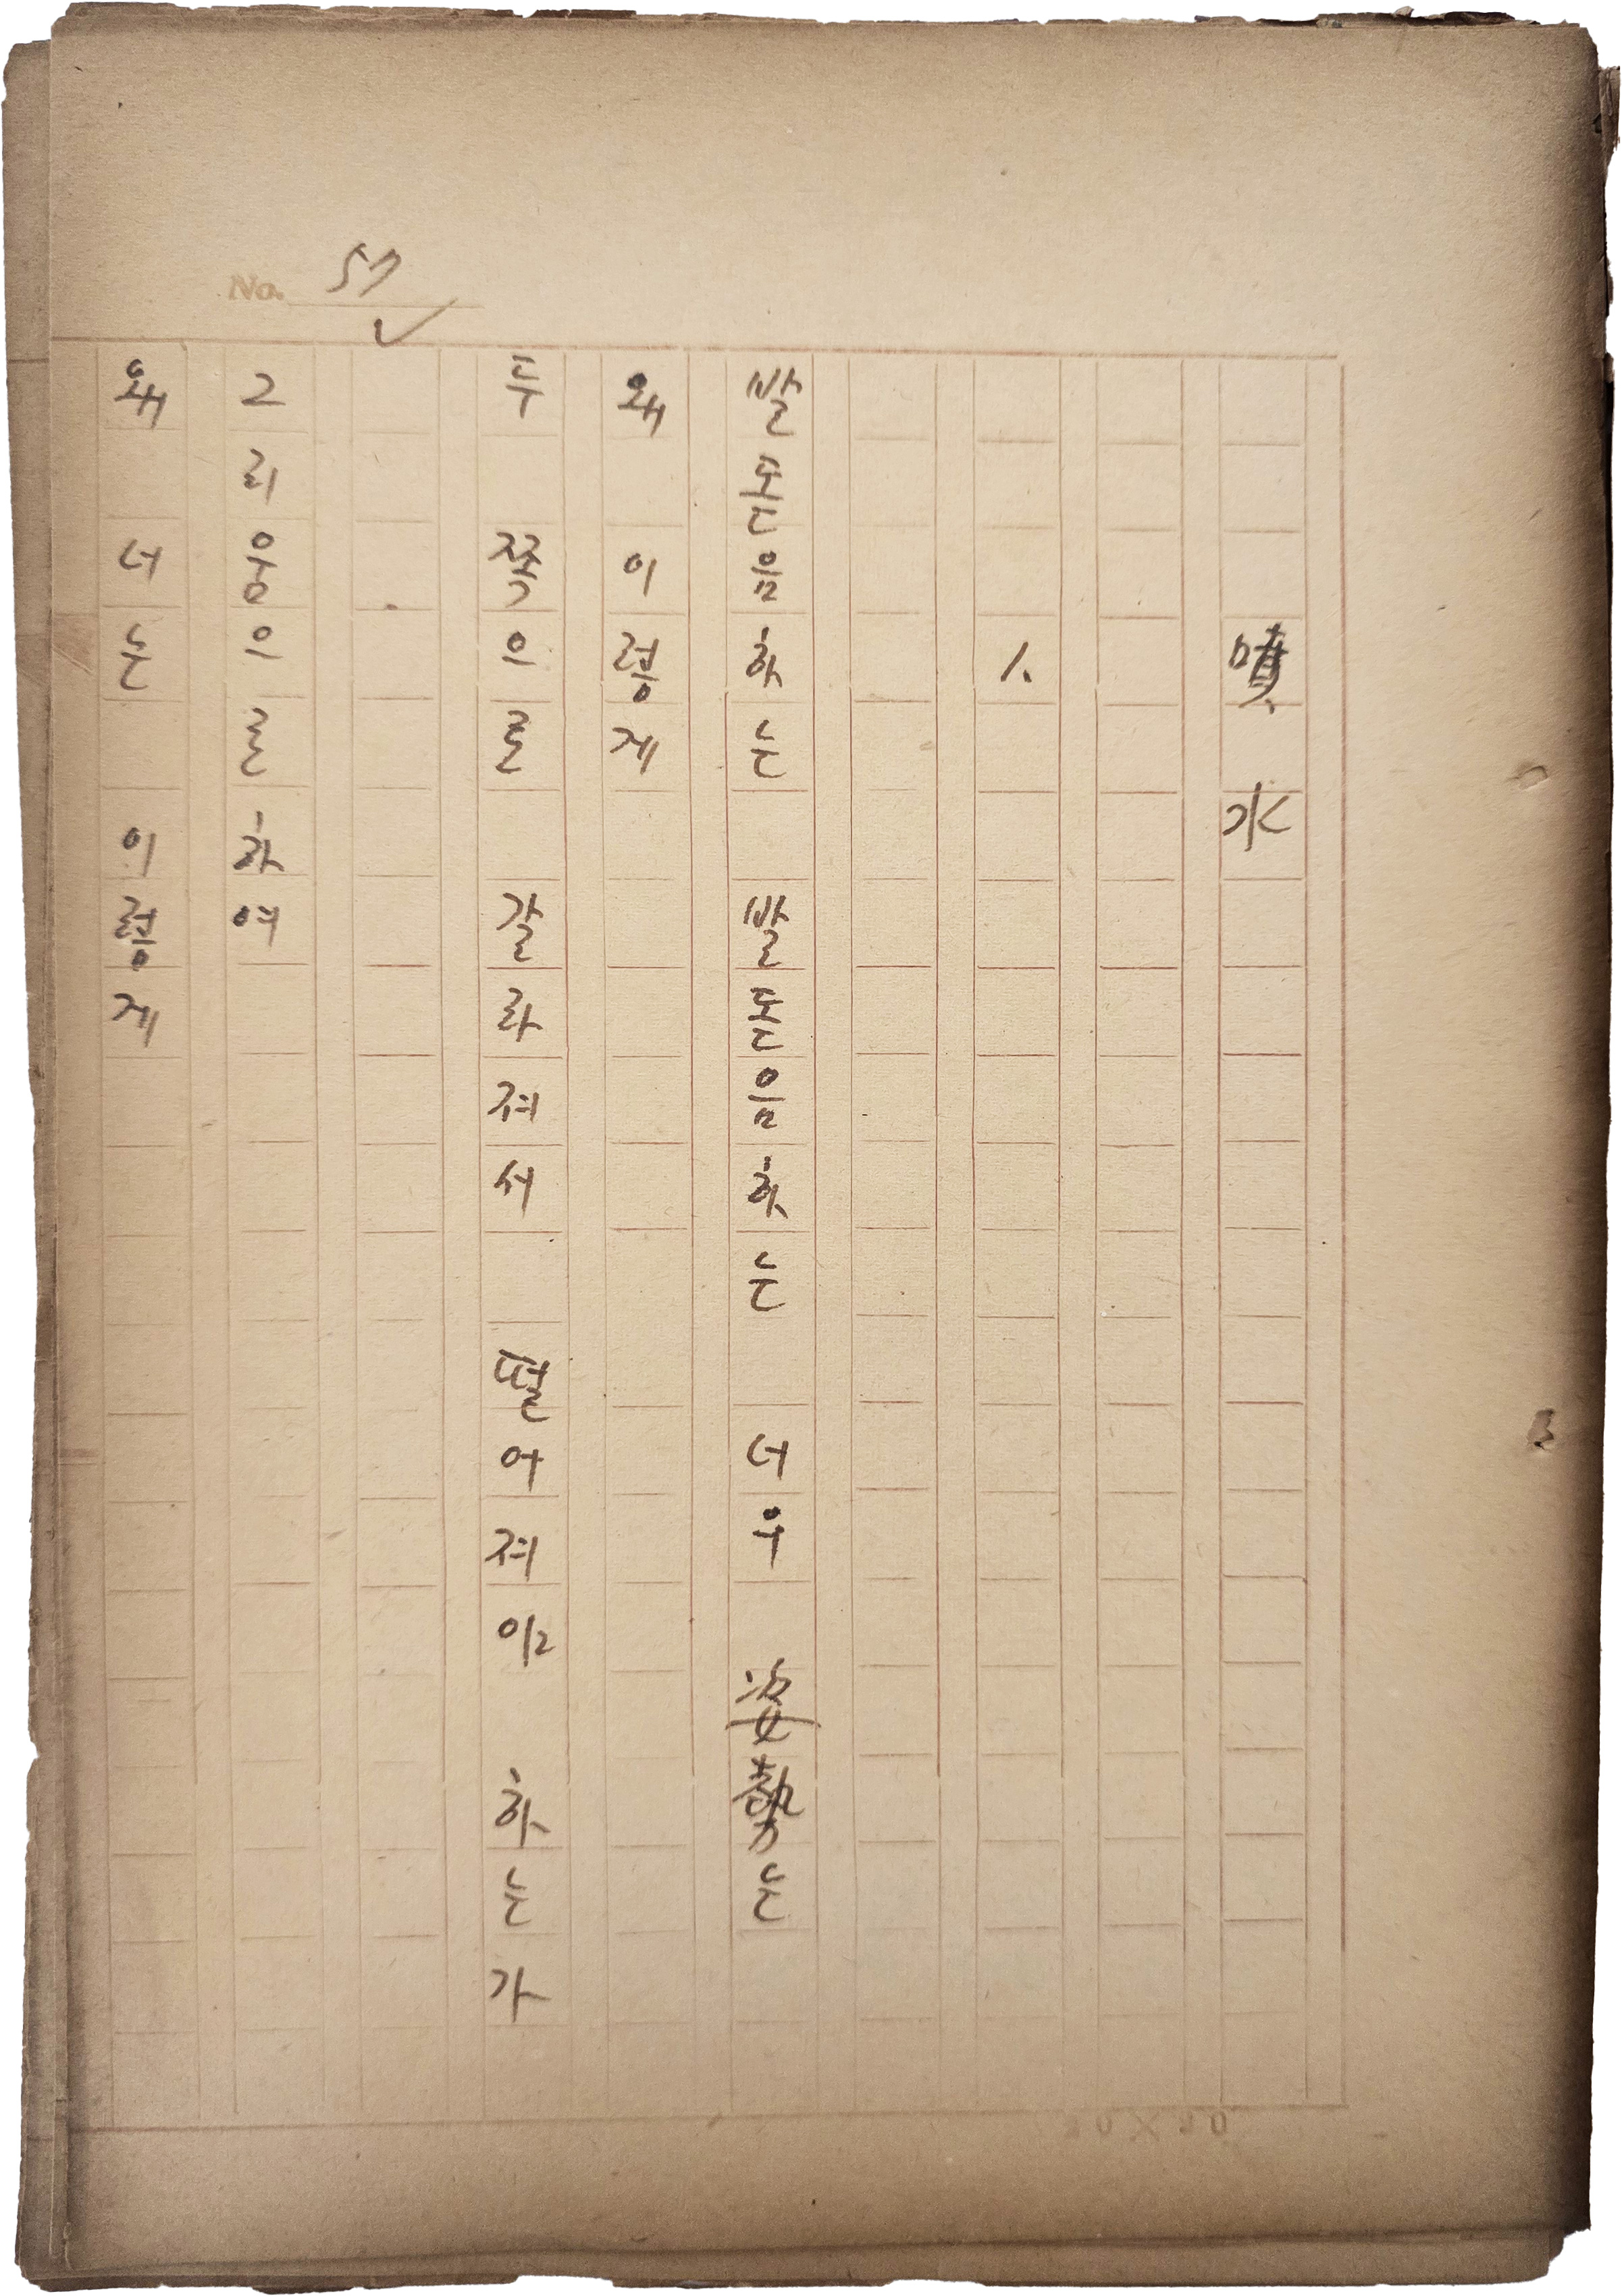 噴水
1.
발돋음하는 발돋음하는 너의 姿勢는
왜 이렇게
두 쪽으로 갈라져서 떨어져야 하는가
그리움으로 하여
왜 너는 이렇게
No. 57